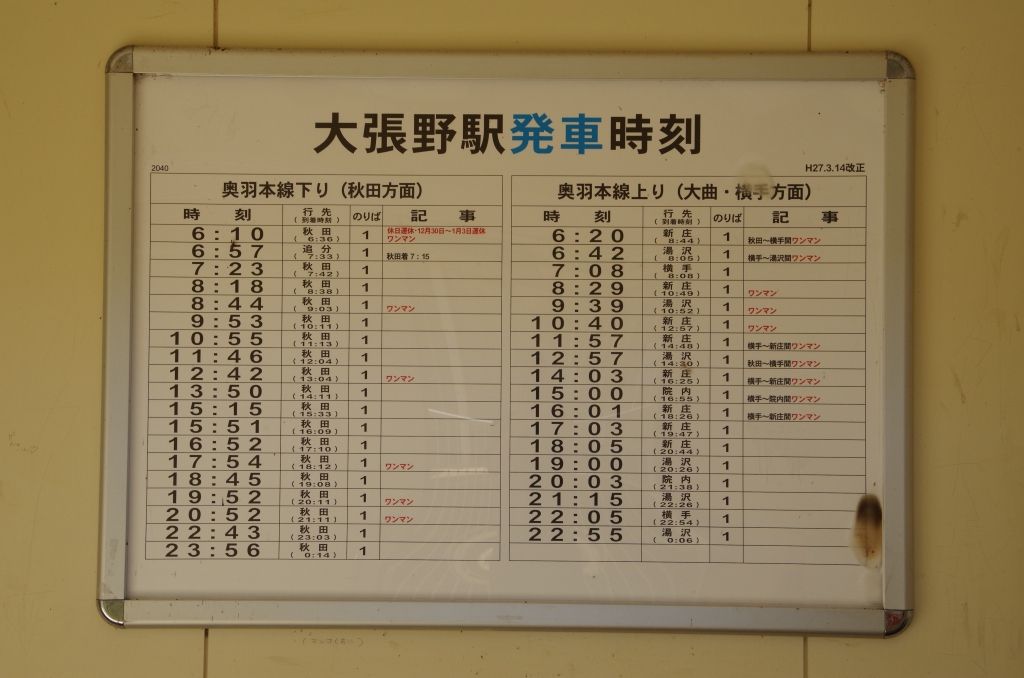 大張野駅発車時刻
2040
H27.3.14改正
奥羽本線下り（秋田方面）
時刻 行先（到着時刻） のりば 記事
6:10 秋田（6:36） 1 休日運休・12月30日～1月3日運休 ワンマン
6:57 追分（7:33） 1 秋田着7：15
7:23 秋田（7:42） 1
8:18 秋田（8:38） 1
8:44 秋田（9:03） 1 ワンマン
9:53 秋田（10:11） 1
10:55 秋田（11:13） 1
11:46 秋田（12:04） 1
12:42 秋田（13:04） 1 ワンマン
13:50 秋田（14:11） 1
15:15 秋田（15:33） 1
15:51 秋田（16:09） 1
16:52 秋田（17:10） 1
17:54 秋田（18:12） 1 ワンマン
18:45 秋田（19:08） 1
19:52 秋田（20:11） 1 ワンマン
20:52 秋田（21:11） 1 ワンマン
22:43 秋田（23:03） 1
23:56 秋田（0:14） 1
奥羽本線上り（大曲・横手方面）
時刻 行先（到着時刻） のりば 記事
6:20 新庄（8:44） 1 秋田～横手間ワンマン
6:42 湯沢（8:05） 1 横手～湯沢間ワンマン
7:08 横手（8:08） 1
8:29 新庄（10:49） 1 ワンマン
9:39 湯沢（10:52） 1 ワンマン
10:40 新庄（12:57） 1 ワンマン
11:57 新庄（14:48） 1 横手～新庄間ワンマン
12:57 湯沢（14:30） 1 秋田～横手間ワンマン
14:03 新庄（16:25） 1 横手～新庄間ワンマン
15:00 院内（16:55） 1 横手～院内間ワンマン
16:01 新庄（18:26） 1 横手～新庄間ワンマン
17:03 新庄（19:47） 1
18:05 新庄（20:44） 1
19:00 湯沢（20:26） 1
20:03 院内（21:38） 1
21:15 湯沢（22:26） 1
22:05 横手（22:54） 1
22:55 湯沢（0:06） 1